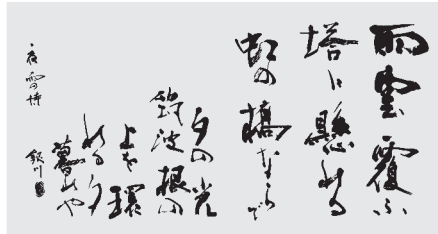 雨雲覆ふ
塔に懸れる
虹の橋ならで
夕の光
筑波根の
上を環
れる夕
暮れや
銀川